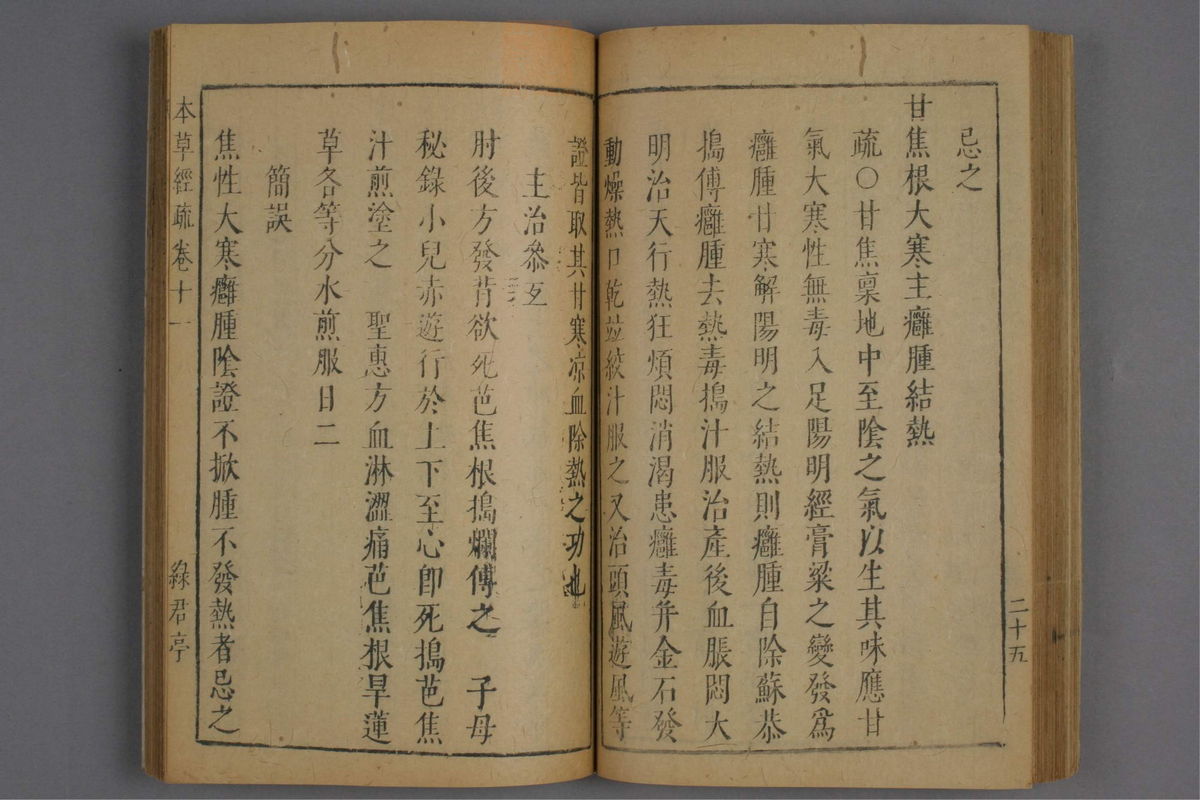 二十五
忌之
甘焦根大寒主癰腫結熱
疏○甘焦稟地中至陰之氣以生其味應甘
氣大寒性無毒入足陽明經膏粱之變發爲
癰腫甘寒解陽明之結熱則癰腫自除蘇恭
搗傅癰腫去熱毒搗汁服治產後血脹悶大
明治天行熱狂煩悶消渴患癰毒并金石發
動燥熱口乾並絞汁服之又治頭風遊風等
證皆取其甘寒凉血除熱之功也
主治參互
肘後方發背欲死芭焦根搗爛傅之 子母
秘錄小兒赤遊行於上下至心卽死搗芭焦
汁煎塗之 聖惠方血淋澀痛芭焦根旱蓮
草各等分水煎服日二
簡誤
焦性大寒癰腫陰證不掀腫不發熱者忌之
本草經疏卷十一
綠君亭